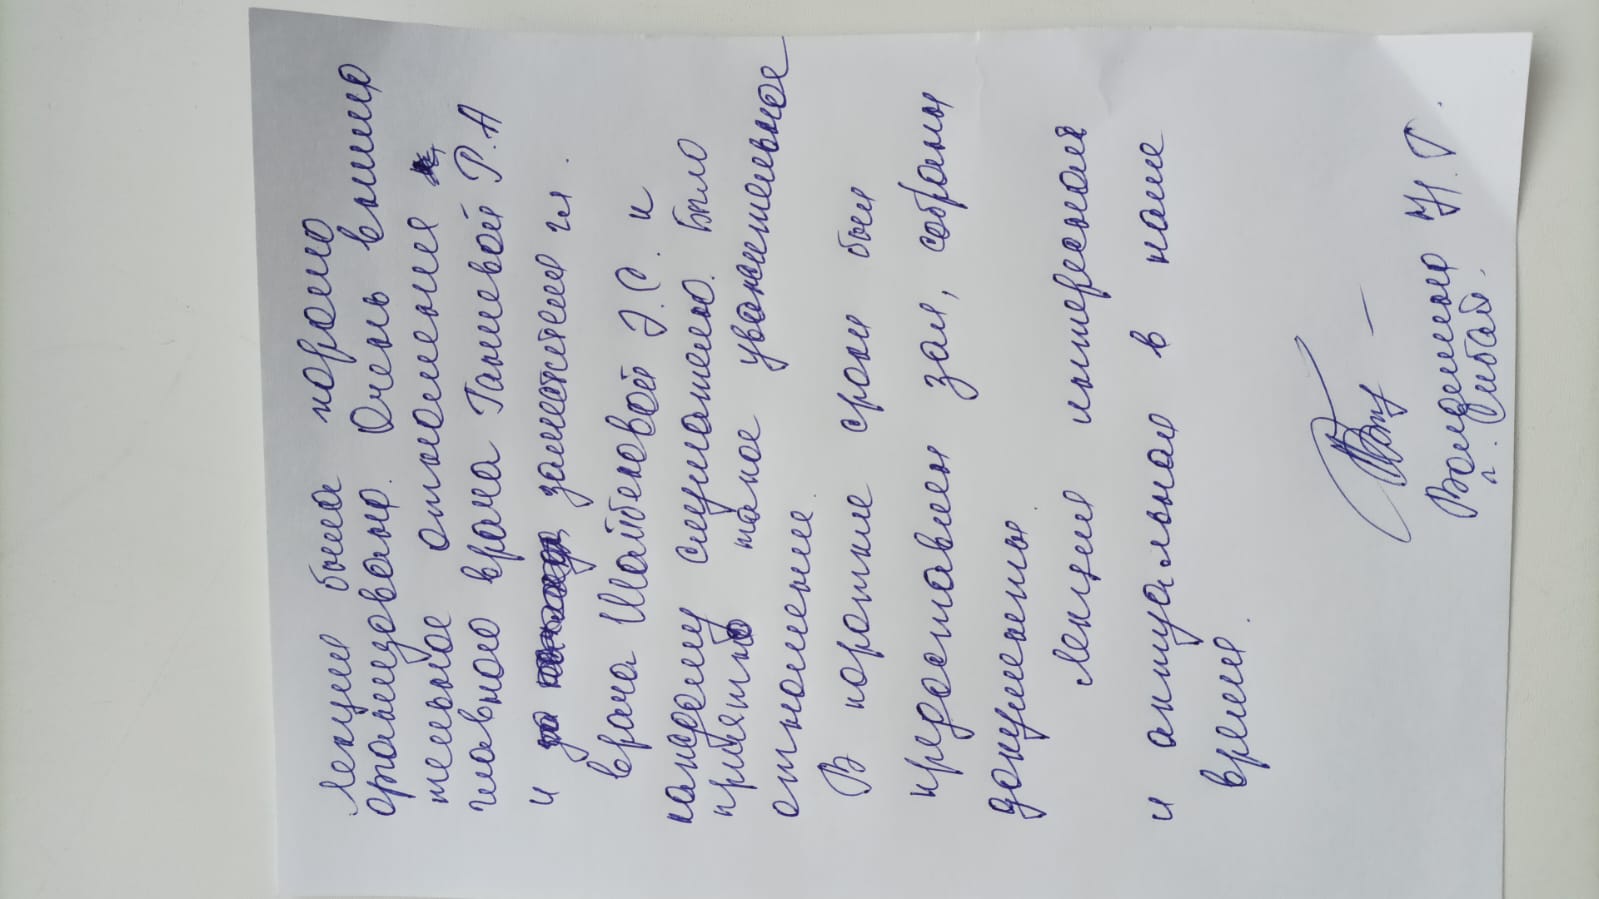 Лекция была хорошо
организована. Очень внима
тельное отношение
главного врача Ганиевой Р.А
и заместителя гл.
врача Шайбековой Э.С. и
каждому слушателю. Было
приятно такое уважительное
отношение.
В короткие сроки был
предоставлен зал, собраны
документы.
Лекция интересная
и актуальная в наше
время.
Валимеев Н.Г.
г. Сибай.